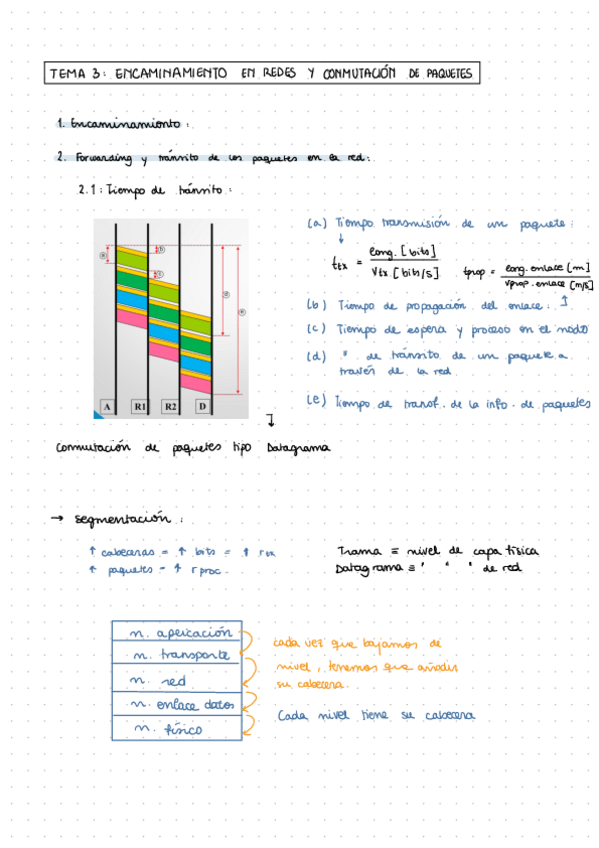 TEMA 3: ENCAMINAMIENTO EN REDES Y CONMUTACIÓN DE PAQUETES
1. Encaminamiento:
2. Forwarding y tránsito de los paquetes en la red:
2.1: Tiempo de tránsito:
(a) Tiempo transmisión de un paquete:
↓
ttx = long. [bits] / Vtx [bits/s]
tprop = long. enlace [m] / Vprop. enlace [m/s]
(b) Tiempo de propagación del enlace:
(c) Tiempo de espera y proceso en el nodo
(d) " de tránsito de un paquete a
través de la red.
(e) Tiempo de transf. de la info. de paquetes
a
b
c
d
e
A R1 R2 D
Conmutación de paquetes tipo Datagrama
→ Segmentación:
↑ cabeceras = ↑ bits = ↑
↑ paquetes = ↑ proc.
Trama ≡ nivel de capa física
Datagrama ≡ " " " de red
n. aplicación
n. transporte
n. red
n. enlace datos
n. físico
cada vez que bajamos de
nivel, tenemos que añadir
su cabecera.
Cada nivel tiene su cabecera